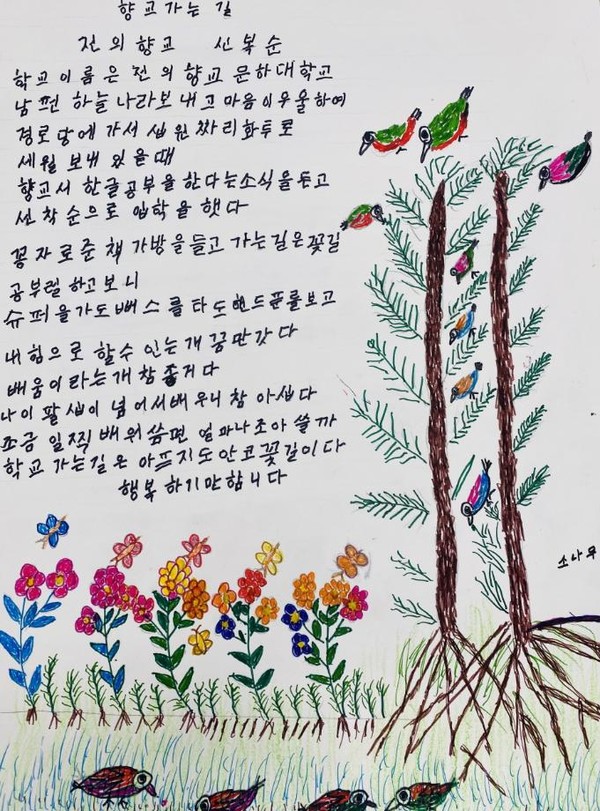 향교가는 길
전의향교 신복순
학교이름은 전의 향교 문하대학교
남편 하늘나라보내고 마음이우울하여
경로당에 가서 십원짜리화투로
세월 보내 있을때
향교서 한글공부을 한다는소식을듣고
선착순으로 입학을 햇다
꽁자로준 책 가방을들고 가는길은꽃길
공부럴 하고보니
슈퍼을가도뻐스를타도핸드폰를보고
내힘으로 할수 인는개 꿈만갓다
배움이라는개참좋거다
나이 팔십이 넘어서배우니 참 아쉽다
쪼금 일찍 배워쓰면 얼마나조아쓸까
학교 가는길은 아프지도안코꽃길이다
행복하기만합니다
소나무